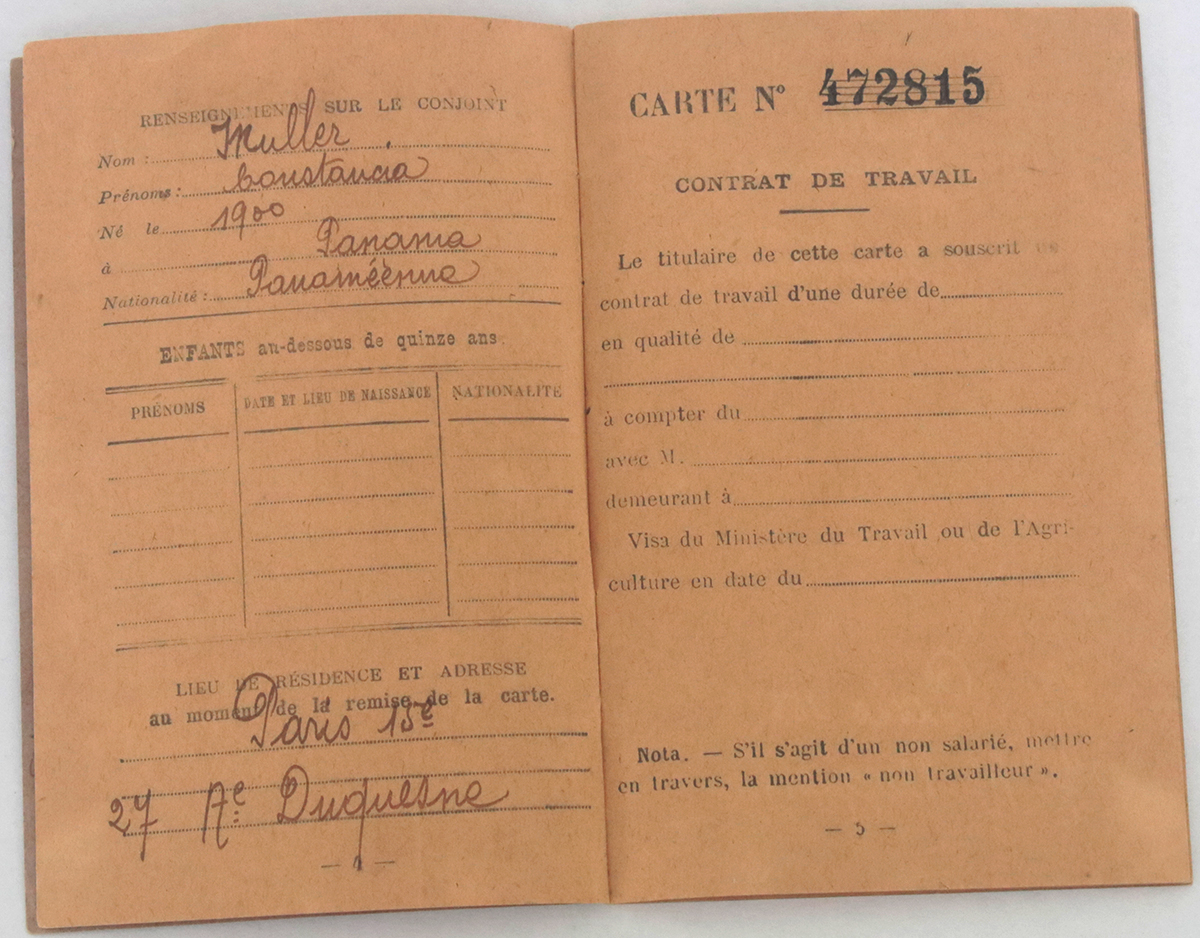 RENSEIGNEMENTS SUR LE CONJOINT
Nom : Muller
Prénoms : Constancia
Né le 1900
à Panama
Nationalité : Panaméenne
ENFANTS au-dessous de quinze ans.
PRÉNOMS DATE ET LIEU DE NAISSANCE NATIONALITÉ
LIEU DE RÉSIDENCE ET ADRESSE
au moment de la remise de la carte.
Paris 15e
27 Ae Duquesne
CARTE N° 472815
CONTRAT DE TRAVAIL
Le titulaire de cette carte a souscrit un
contrat de travail d'une durée de
en qualité de
à compter du
avec M.
demeurant à
Visa du Ministère du Travail ou de l'Agri-
culture en date du
Nota. — S'il s'agit d'un non salarié, mettre
en travers, la mention « non travailleur ».
— 5 —